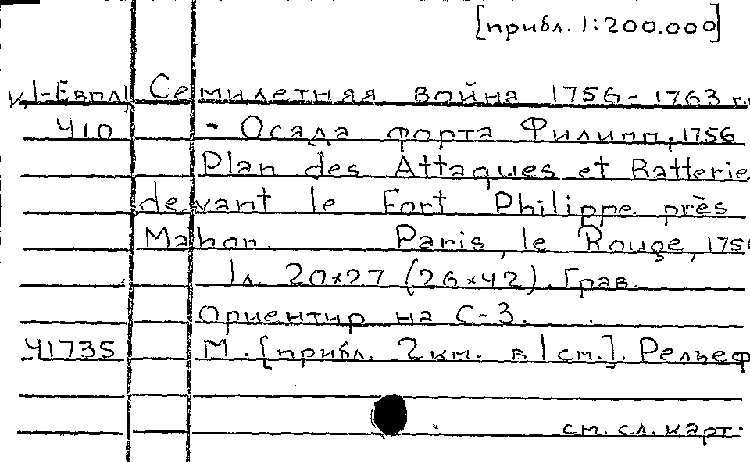 [прибл. 1:200.000]
V, I-Европ Семилетняя война 1756-1763 г.
Ч10 - Осада форта Филипп, 1756
Plan des Attaques et Batterie
devant le Fort Philippe près
Mahon. Paris, le Rouge, 1756
1 л. 20×27 (26×42). Грав.
Ориентир на С-З.
Ч1735 М. [прибл. 2 км. в 1 см.]. Рельеф
см. сл. карт.